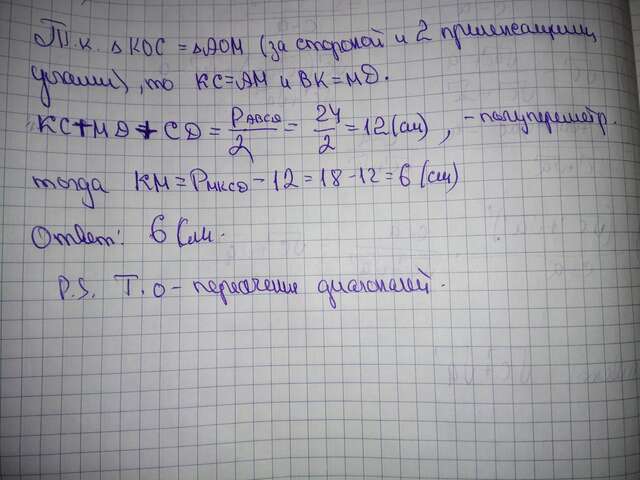 Т.к. △KOC = △AOM (за стороной и 2 прилежащими
углами), то KC=AM и BK=MD.
KC+MD+CD = PABCD/2 = 24/2 = 12 (см), - полупериметр.
тогда KM = PMKCD - 12 = 18 - 12 = 6 (см)
Ответ: 6 см.
P.S. Т. О - пересечение диагоналей.